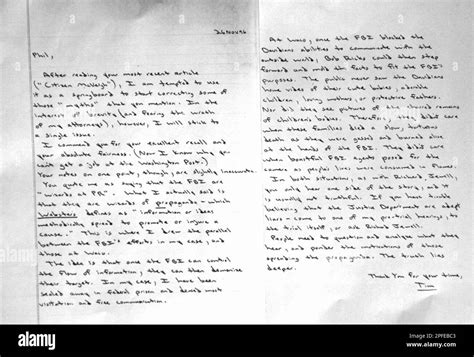 26NOV96
Phil,
After reading your most recent article
("Citizen McVeigh"), I am tempted to use
it as a springboard to start correcting some of
those "myths" that you mention. In the
interest of brevity (and fearing the wrath
of my attorneys), however, I will stick to
a single issue.
I commend you for your excellent recall and
your absolute fairness. (Now I know why you
can't get a job at the Washington Post.)
Your notes on one point, though, are slightly inaccurate.
You quote me as saying that the FBI are
"wizards at PR". What I actually said is
that they are wizards of propaganda - which
Websters defines as "information or ideas
methodically spread to promote or injure a
cause." This is where I drew the parallel
between the FBI's efforts in my case, and
those at Waco.
The idea is that once the FBI can control
the flow of information, they can then demonize
their target. In my case, I have been
sealed away in federal prison and denied most
visitation and free communication.
At Waco, once the FBI blocked the
Davidians abilities to communicate with the
outside world, Bob Ricks could then step
forward and slim facts to fit the FBI's
purposes. The public never saw the Davidians
home video of their cute babies, adorable
children, loving mothers, or protective fathers.
Nor did they see pictures of the charred remains
of children's bodies. Therefore, they didn't care
when these families died a slow, torturous
death as they were gassed and burned alive
at the hands of the FBI. They didn't care
when boastful FBI agents posed for the
cameras as people's lives were consumed in flames.
In both situations, as with Richard Jewell,
you only hear one side of the story, and it
is usually not truthful. If you have trouble
believing that the Justice Department are adept
liars - come to one of my pretrial hearings, to
the trial itself, or ask Richard Jewell.
People need to question and analyze what they
hear, and ponder the motivations of those
spreading the propaganda. The truth lies
deeper.
Thank You For your time,
Tim
alamy
Image ID: 2PFEBC3
www.alamy.com